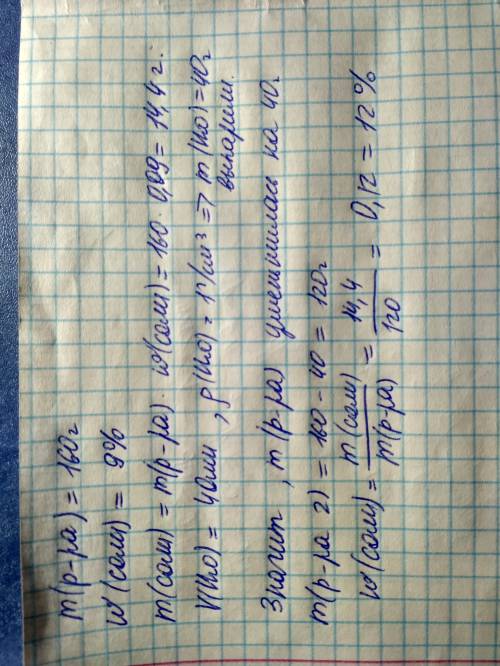 m(р-ра) = 160г
ω(соли) = 9%
m(соли) = m(р-ра) · ω(соли) = 160 · 0,09 = 14,4 г.
V(H₂O) = 40мл, ρ(H₂O) = 1г/см³ => m(H₂O) = 40г
выпарили.
Значит, m(р-ра) уменьшилась на 40г
m(р-ра 2) = 160 - 40 = 120г
ω(соли) = m(соли)/m(р-ра) = 14,4/120 = 0,12 = 12%